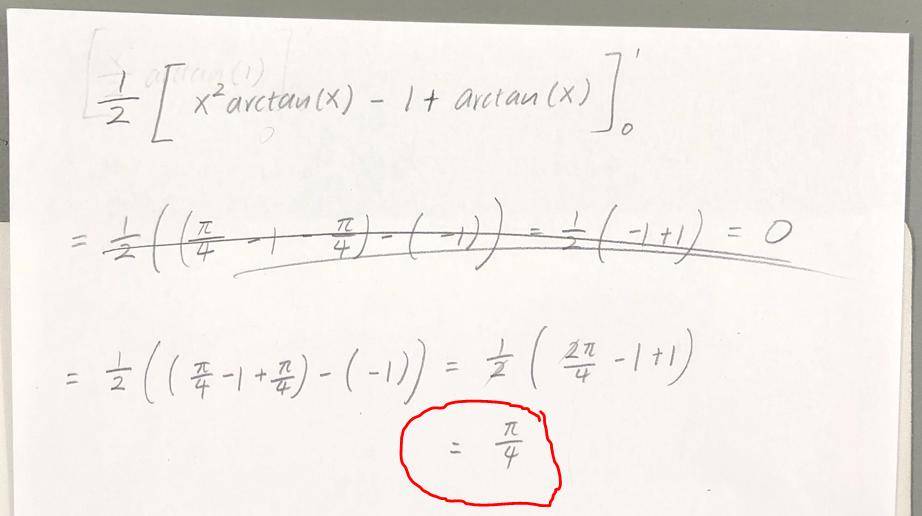 1/2 [ x² arctan(x) - 1 + arctan(x) ]₀¹
= 1/2 ( ( π/4 - 1 - π/4 ) - ( -1 ) ) = 1/2 ( -1 + 1 ) = 0
= 1/2 ( ( π/4 - 1 + π/4 ) - ( -1 ) ) = 1/2 ( 2π/4 - 1 + 1 )
= π/4